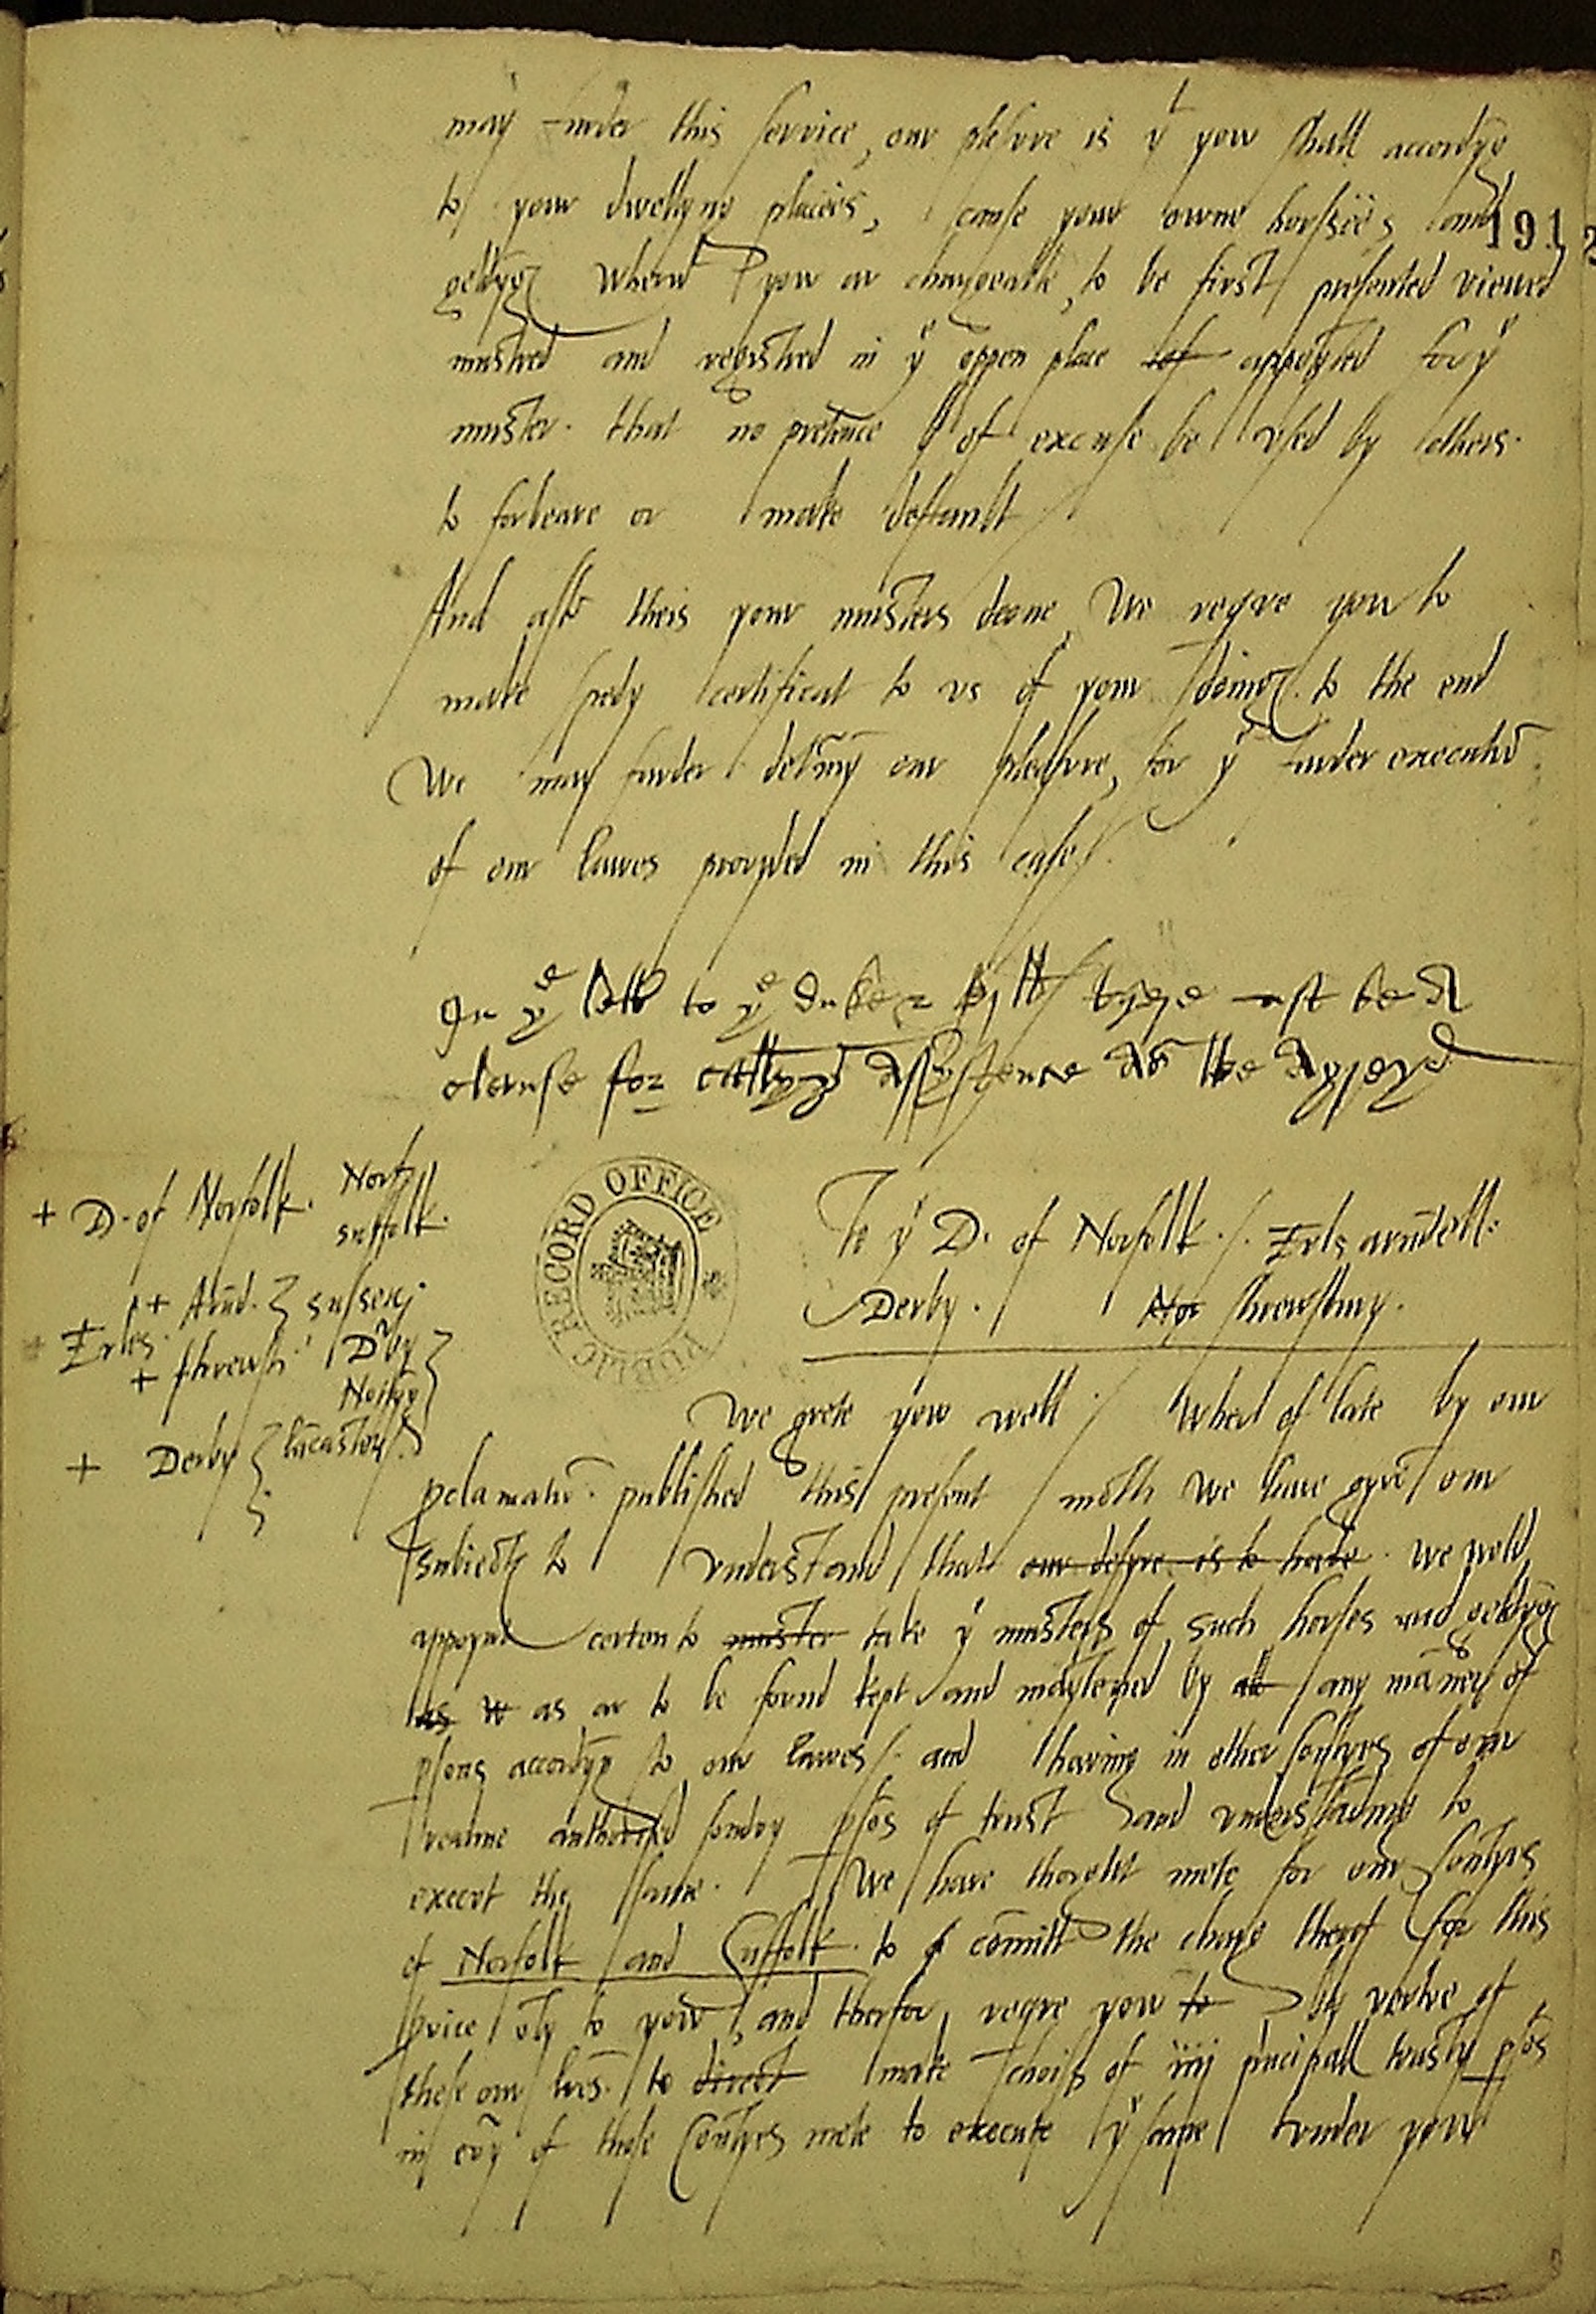 may furder this service, our plesure is yt yow shall accordyg
to your dwellyng places, cause your owne horssees and
191
geldyngs wherwt yow ar chargeable, to be first presented viewed
mustred and registred in ye oppen place of appoynted for ye
muster. that no pretence of excuse be vsed by others.
to forbeare or make defaault
And after theis your musters doone, We reqre you to
make spedy certificat to vs of your doings. to the end
We may furder determyn our pleasure, for ye furder execution
of our lawes provyded in this case.
In ye to ye duke must be A
clause for assystence
+ D. of Norfolk. Norf
suffolk.
+ Arūd. sussex.
+ Erles.
+ shrewsb. Derby
Notyg
+ Derby lācaster
PUBLIC RECORD OFFICE
To ye D. of Norfolk./. Erls arūdell.
Derby. Nor shrewsbury.
We grete yow well / Wher of late by our
pclamation. published this present moth We have gyven our
subiects to vnderstand that our desyre is to have. we wold
appoynt certen to muster take ye musters of such horses and geldygs
as w as ar to be found kept and māyteyned by all any maner of
psons accordyg to our lawes/. and having in other Coūtyes of our
realme authorised sondry psōs of trust and vnderstādīng to
execut the same. We have thought mete for our Coūtyes
of Norfolk and Suffolk. to cōmitt the charg therof for this
service oly to yow, and therfor reqre yow to by vertue of
these our lres. to direct make choiss of iiij pricipall trusty psōs
in evy of those Coūtyes mete to execute ye same vnder yow